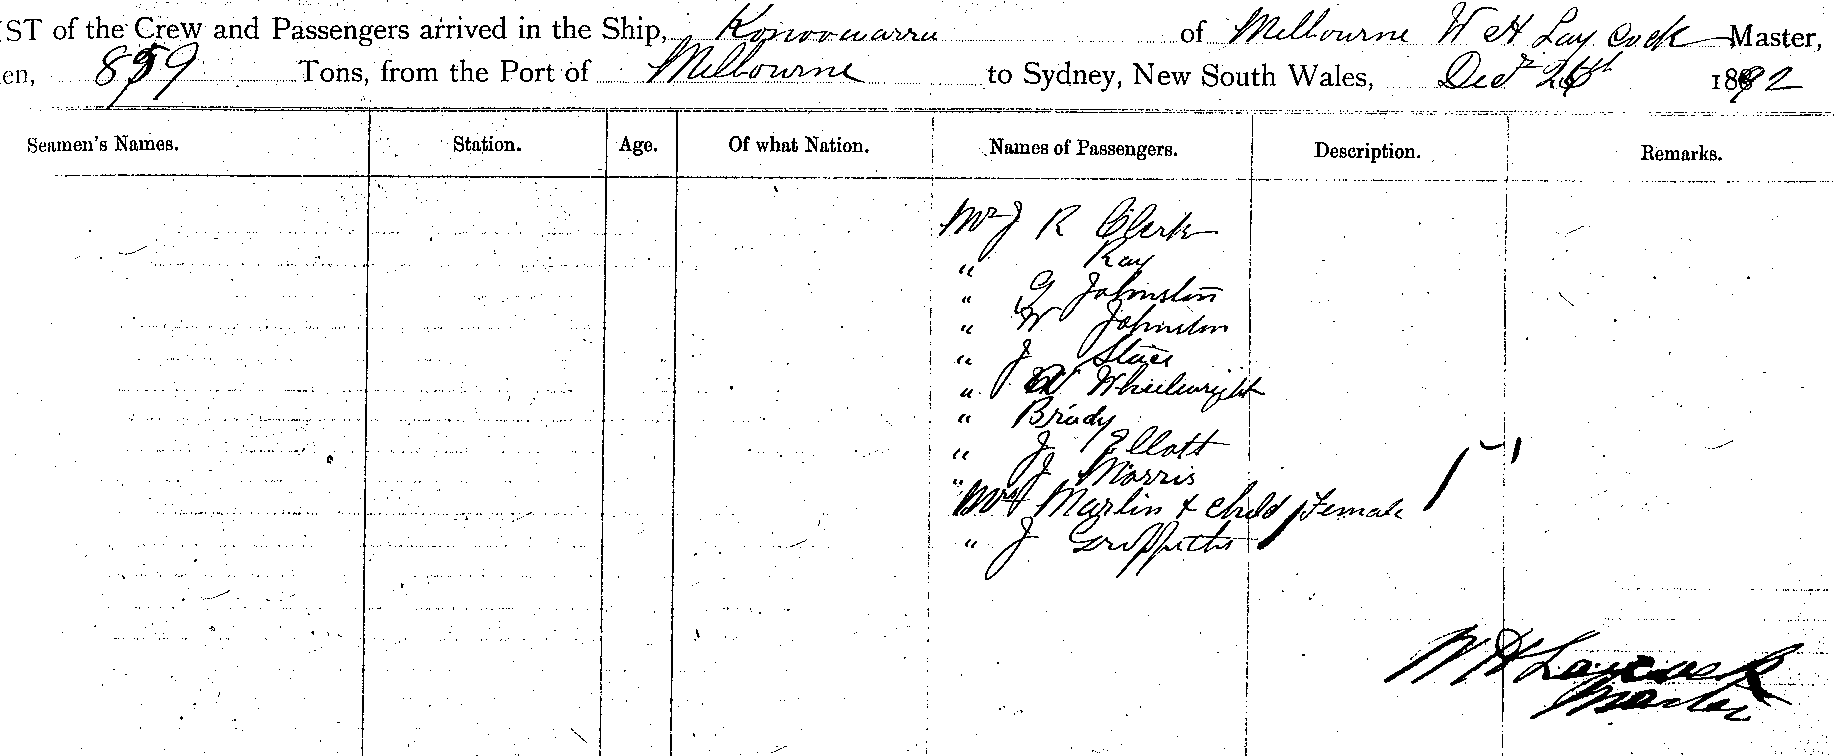 IST of the Crew and Passengers arrived in the Ship, Konoowarra of Melbourne W H Laycock Master,
en, 859 Tons, from the Port of Melbourne to Sydney, New South Wales, Decr 1892
Seamen's Names. Station. Age. Of what Nation. Names of Passengers. Description. Remarks.
Mr J R Clerk
" Ray
" G Johnston
" W Johnston
" J
" W Wheelwright
" Brudy
" J Ellott
" J Morris
Mrs Marlin + child Female
" J Griffiths
W H Laycock
Master